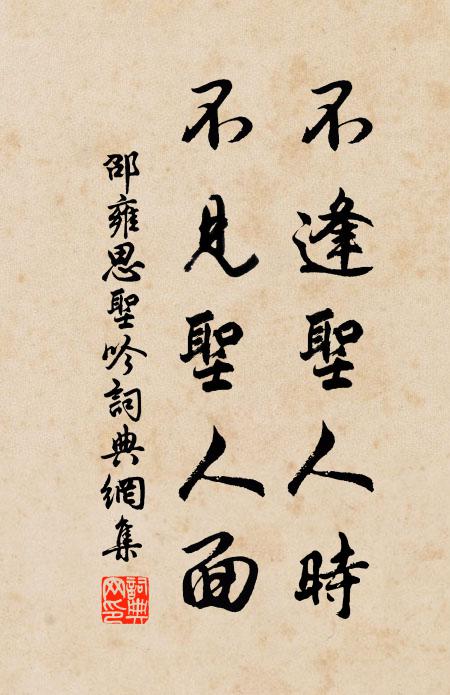 不逢聖人時
不見聖人面
邵雍思聖吟詞典網集
詞典
网印